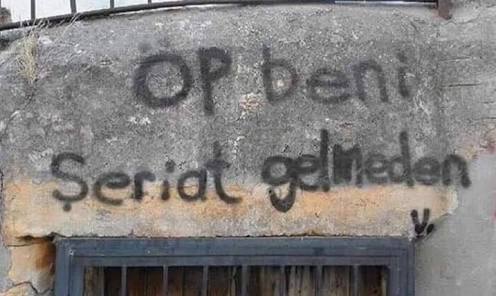 ÖP beni
Şeriat gelmeden
v.